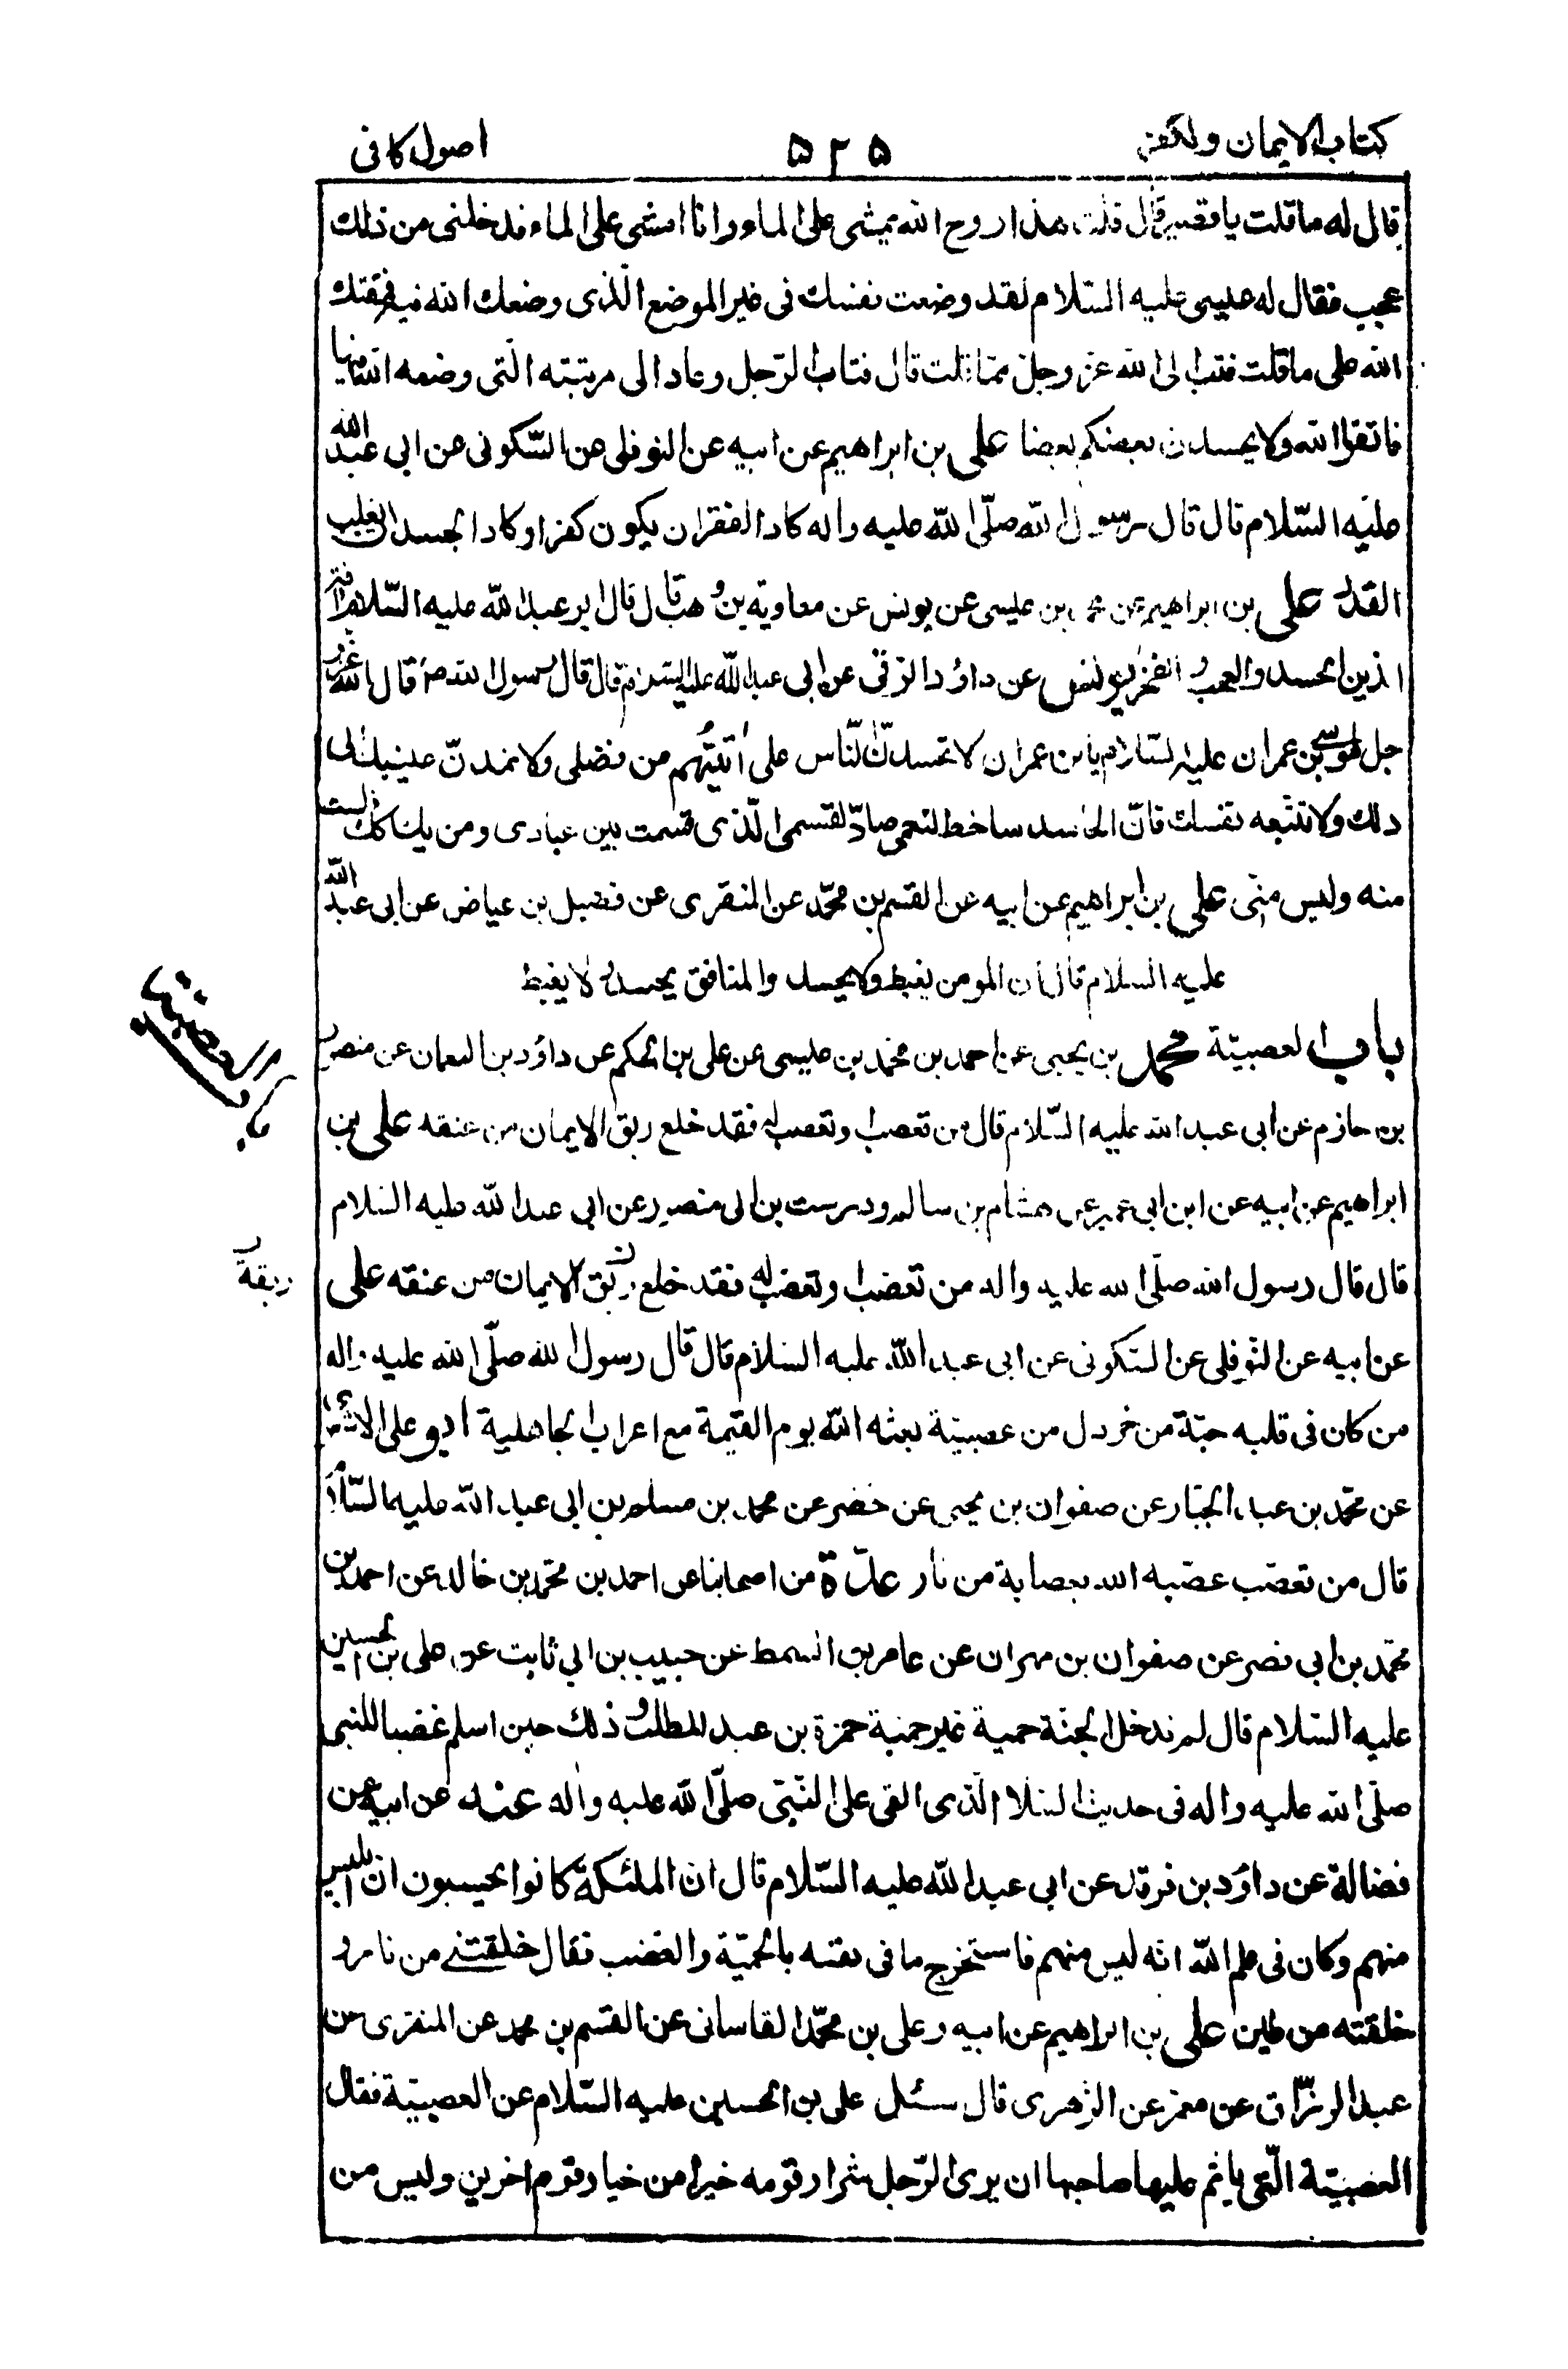 كتاب الايمان والكفر
۵۲۵
اصول كافى
قال له ما قلت يا قصير قال قلت هذا روح الله يمشى على الماء وانا امشى على الماء فدخلنى من ذلك
عجب فقال له عيسى عليه السّلام لقد وضعت نفسك فى غير الموضع الّذى وضعك الله فيه فمقتك
الله على ما قلت فتب الى الله عزّ وجلّ ممّا قلت قال فتاب الرّجل وعاد الى مرتبته الّتى وضعه الله فيها
فاتقوا الله ولا يحسدن بعضكم بعضا على بن ابراهيم عن ابيه عن النوفلى عن السّكونى عن ابى عبد الله
عليه السّلام قال قال رسول الله صلّى الله عليه واله كاد الفقر ان يكون كفرا وكاد الحسد ان يغلب
القدر على بن ابراهيم عن محمد بن عيسى عن يونس عن معاوية بن وهب قال قال ابو عبد الله عليه السّلام افة
الدين الحسد والعجب والفخر يونس عن داود الرقى عن ابى عبد الله عليه السّلام قال قال رسول الله ص قال الله عزّ و
جل لموسى بن عمران عليه السّلام يا بن عمران لا تحسدنّ النّاس على ما اتيتهم من فضلى ولا تمدنّ عينيك الى
ذلك ولا تتبعه نفسك فانّ الحاسد ساخط لنعمى صادّ لقسمى الّذى قسمت بين عبادى ومن يك كذلك فلست
منه وليس منّى على بن ابراهيم عن ابيه عن القسم بن محمّد عن المنقرى عن فضيل بن عياض عن ابى عبد الله
عليه السلام قال ان المومن يغبط ولا يحسد والمنافق يحسد ولا يغبط
باب العصبيّة محمد بن يحيى عن احمد بن محمّد بن عيسى عن على بن الحكم عن داود بن النعمان عن منصور
بن حازم عن ابى عبد الله عليه السّلام قال من تعصب او تعصب له فقد خلع ربق الايمان من عنقه على بن
ابراهيم عن ابيه عن ابن ابى عمير عن هشام بن سالم ودرست بن ابى منصور عن ابى عبد الله عليه السّلام
قال قال رسول الله صلّى الله عليه واله من تعصّب او تعصّب له فقد خلع ربق الايمان من عنقه على
عن ابيه عن النّوفلى عن السّكونى عن ابى عبد الله عليه السّلام قال قال رسول الله صلّى الله عليه واله
من كان فى قلبه حبّة من خردل من عصبيّة بعثه الله يوم القيمة مع اعراب الجاهلية ابو على الاشعرى
عن محمّد بن عبد الجبّار عن صفوان بن يحيى عن خضر عن محمد بن مسلم عن ابى عبد الله عليهما السّلام
قال من تعصّب عصّبه الله بعصابة من نار عدّة من اصحابنا عن احمد بن محمّد بن خالد عن احمد بن
محمّد بن ابى نصر عن صفوان بن مهران عن عامر بن السمط عن حبيب بن ابى ثابت عن على بن الحسين
عليه السّلام قال لم تدخل الجنّة حمية غير حمية حمزة بن عبد المطلب وذلك حين اسلم غضبا للنبى
صلّى الله عليه واله فى حديث السّلا الّذى القى على النّبىّ صلّى الله عليه واله عنه عن ابيه عن
فضالة عن داود بن فرقد عن ابى عبد الله عليه السّلام قال ان الملئكة كانوا يحسبون ان ابليس
منهم وكان فى علم الله انه ليس منهم فاستخرج ما فى نفسه بالحميّة والغضب فقال خلقتنى من نار و
خلقته من طين على بن ابراهيم عن ابيه وعلى بن محمّد القاسانى عن القسم بن محمد عن المنقرى عن
عبد الرزّاق عن معمر عن الزهرى قال سئل على بن الحسين عليه السّلام عن العصبيّة فقال
العصبيّة الّتى ياثم عليها صاحبها ان يرى الرّجل شرار قومه خيرا من خيار قوم اخرين وليس من
باب العصبيّة
ربقة